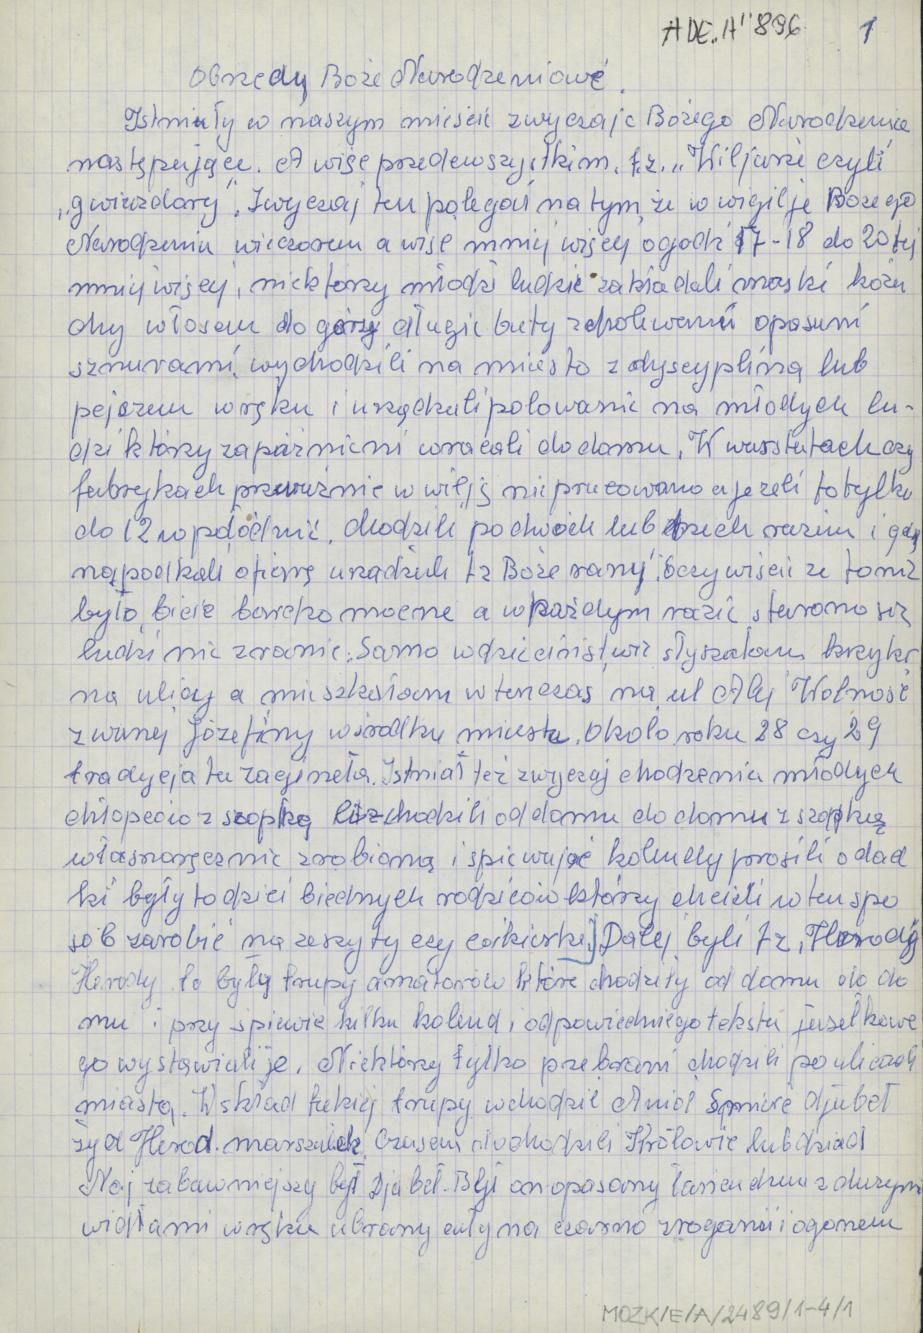 ADE."A" 896 1
Obrzędy Boże Narodzeniowe.
Istniały w naszym mieście zwyczaje Bożego Narodzenia
następujące. A więc przedewszystkim. tz. „Wiljarze czyli
„gwiazdory”. Zwyczaj ten polegał na tym, że w wigilję Bożego
Narodzenia wieczorem a więc mniej więcej o godz 17-18 do 20 tej
mniej więcej, niektórzy młodzi ludzie zakładali maski kożu
chy włosem do góry długie buty z cholewami opasani
sznurami, wychodzili na miasto z dyscypliną lub
pejczem w ręku i urządzali polowanie na młodych lu-
dzi którzy zapóźnieni wracali do domu. W warstatach czy
fabrykach przeważnie w wilję nie pracowano a jeżeli to tylko
do 12 w południe. Chodzili po dwóch lub trzech razem i gdy
napodkali ofiarę urządzali tz Boże rany". Oczywiście że to nie
było, bicie bardzo mocne a w każdym razie starano się
ludzi nie zranić. Sama w dzieciństwie słyszałam krzyki
na ulicy a mieszkałam wtenczas na ul Alej Wolność
zwanej Józefiny w środku miasta. Około roku 28 czy 29
tradycja ta zaginęła. Istniał też zwyczaj chodzenia młodych
chłopców z szopką chodzili od domu do domu z szopką
własnoręcznie zrobioną i śpiewając kolendy prosili o dad
ki były to dzieci biednych rodziców którzy chcieli w ten spo
sób zarobić na zeszyty czy cukierki.] Dalej byli tz „Herody
Herody to były trupy amatorów które chodziły od domu do do
mu i przy śpiewie kilku kolend, odpowiedniego tekstu jasełkowe
go wystawiali je. Niektórzy tylko przebrani chodzili po ulicach
miasta. W skład takiej trupy wchodził Anioł Śmierć djabeł
żyd Herod. marszałek. Czasem dochodzili Królowie lub dziad
Naj zabawniejszy był Djabeł. Był on opasany łańcuchem z dużymi
widłami w ręku ubrany cały na czarno z rogami i ogonem
MOZK/E/A/2489/1-4/1